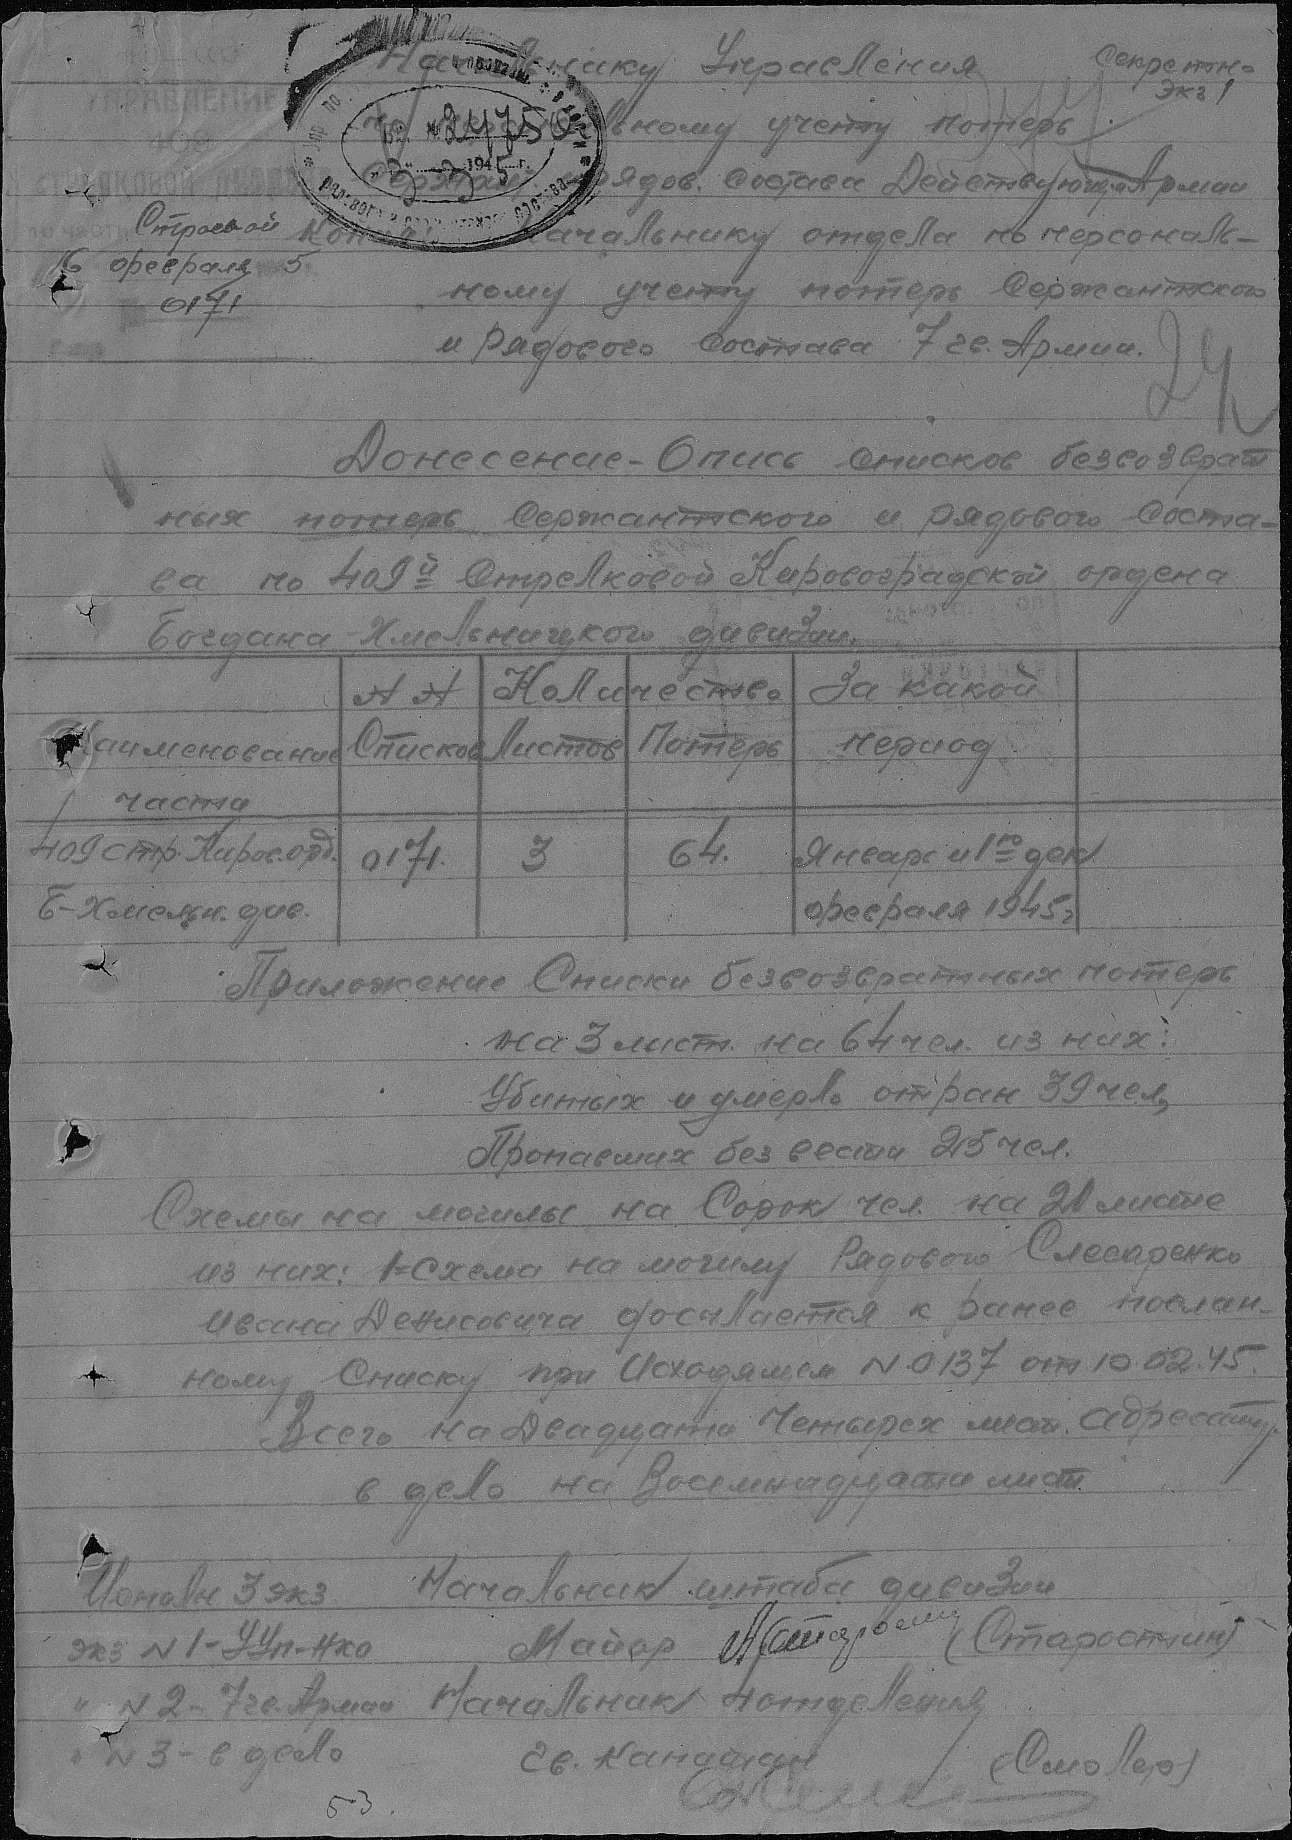 Начальнику Управления
Секретно
Экз 1
по персональному учету потерь
Сержант. и рядов. состава Действующ. Армии
Вх. № 24750
"3" 3 1945 г.
УПРАВЛЕНИЕ
Строевой
16 февраля 5
0171
Копия: Начальнику отдела по персональ-
ному учету потерь Сержантского
и Рядового Состава 7 гв. Армии.
24
Донесение-Опись списков безвозврат
ных потерь Сержантского и рядового Соста-
ва по 409й Стрелковой Кировоградской ордена
Богдана-Хмельницкого дивизии.
Наименование части | № № Списков | Количество Листов | Потерь | За какой период
409 стр. Киров. орд. Б-Хмельн. див. | 0171. | 3 | 64. | Январь и 1ю дек февраля 1945г
Приложение Списки безвозвратных потерь
на 3 лист. на 64 чел. из них:
Убитых и умерло от ран 39 чел,
Пропавших без вести 25 чел.
Схемы на могилы на Сорок чел. на 21 листе
из них: 1-схема на могилу Рядового Слесаренко
Ивана Денисовича досылается к ранее послан-
ному Списку при Исходящем № 0137 от 10.02.45.
Всего на Двадцати Четырех лист. адресату,
в дело на Восемнадцати лист.
Исполн 3 экз.
Начальник штаба дивизии
экз № 1-УУп-Нко
Майор
(Старостин)
" № 2-7 гв. Армии
Начальник 4 отделения
" № 3-в дело
Гв. Капитан
(Смоляр)
53.